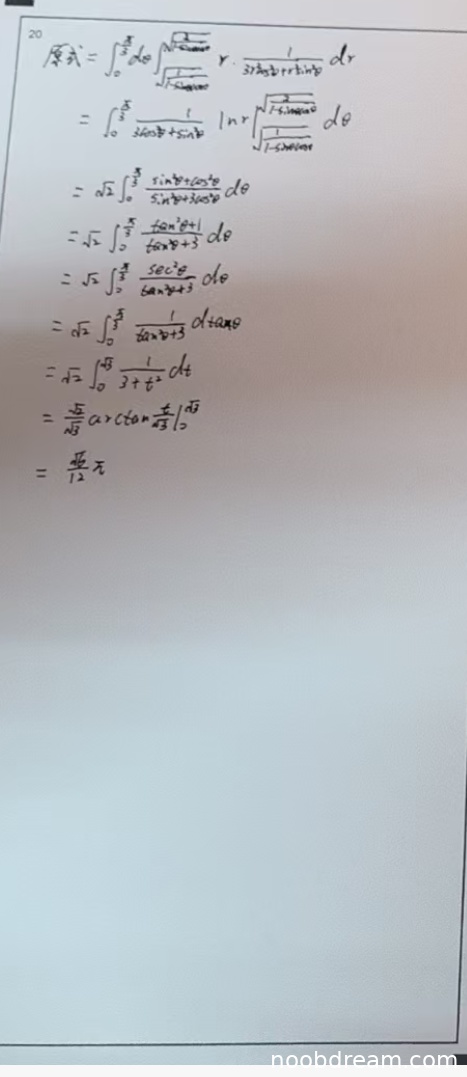 20
原式 = ∫₀^{π/3} dθ ∫_{√(1/(1-sinθcosθ))}^{√(2/(1-sinθcosθ))} r · 1/(3r²cos²θ+r²sin²θ) dr
= ∫₀^{π/3} 1/(3cos²θ+sin²θ) ln r |_{√(1/(1-sinθcosθ))}^{√(2/(1-sinθcosθ))} dθ
= √2 ∫₀^{π/3} (sin²θ+cos²θ)/(sin²θ+3cos²θ) dθ
= √2 ∫₀^{π/3} (tan²θ+1)/(tan²θ+3) dθ
= √2 ∫₀^{π/3} sec²θ/(tan²θ+3) dθ
= √2 ∫₀^{π/3} 1/(tan²θ+3) dtanθ
= √2 ∫₀^{√3} 1/(3+t²) dt
= √2/√3 arctan t/√3 |₀^{√3}
= √6/12 π
noobdream.com